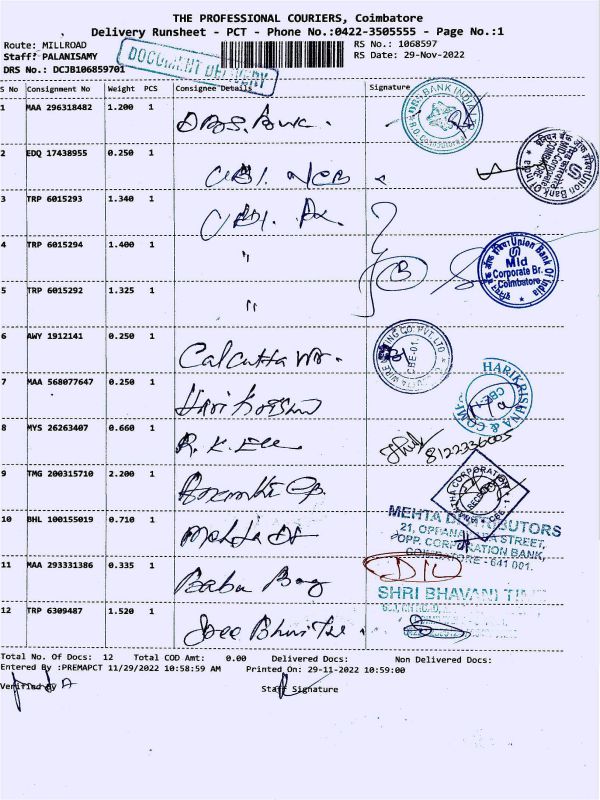 THE PROFESSIONAL COURIERS, Coimbatore
Delivery Runsheet - PCT - Phone No.:0422-3505555 - Page No.:1
Route: MILLROAD
RS No.: 1068597
Staff: PALANISAMY
RS Date: 29-Nov-2022
DRS No.: DCJB106859701
DOCUMENT DELIVERY
S No Consignment No Weight PCS Consignee Details Signature
1 MAA 296318482 1.200 1 DBS. Bank. DBS BANK INDIA
2 EDQ 17438955 0.250 1 UBI. Union Bank Of India
3 TRP 6015293 1.340 1 UBI.
4 TRP 6015294 1.400 1 " Union Bank Of India Mid Corporate Br. Coimbatore
5 TRP 6015292 1.325 1 "
6 AWY 1912141 0.250 1 Calcutta CBE-01.
7 MAA 568077647 0.250 1 Hari Krishna HARIKRISHNA & COM
8 MYS 26263407 0.660 1 R.K. 8122336005
9 TMG 200315710 2.200 1 CORPORATION
10 BHL 100155019 0.710 1 Mehta MEHTA D UTORS
21, OPPANA STREET,
OPP. CORPORATION BANK,
COIMBATORE - 641 001.
11 MAA 293331386 0.335 1 Babu Bag
SHRI BHAVANI TIM
12 TRP 6309487 1.520 1 Sree Bhavi
Total No. Of Docs: 12 Total COD Amt: 0.00 Delivered Docs: Non Delivered Docs:
Entered By :PREMAPCT 11/29/2022 10:58:59 AM Printed On: 29-11-2022 10:59:00
Verified By
Staff Signature